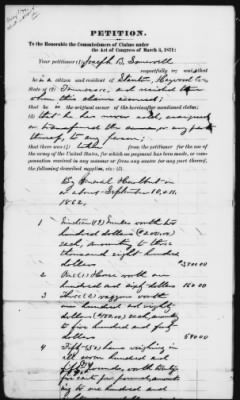 PETITION.
To the Honorable the Commissioners of Claims under
the Act of Congress of March 3, 1871:
Your petitioner (1) Joseph B. Somervell
respectfully represents that
he is a citizen and resident of Stanton, Haywood Co
State of (2) Tennessee, and resided there
when this claim accrued;
that he is the original owner of the hereinafter mentioned claim;
(3) that he has never sold, assigned
or transferred the same, or any part
thereof, to any person;
that there was (4) taken from the petitioner for the use of
the army of the United States, for which no payment has been made, or compensation
received in any manner or from any source (or any part thereof), the
following described supplies, etc: (5)
By General Hurlbut in
or about September 10, & 11,
1862,
1 Nineteen (19) Mules worth two
hundred dollars ($200.00)
each, amounting to three
thousand eight hundred
dollars $3800 00
2 One (1) Horse worth one
hundred and sixty dollars 160 00
3 Three (3) waggons worth
one hundred and eighty
dollars ($180.00) each, amounting
to five hundred and forty
dollars 540 00
4 Fifty (50) hogs weighing in
all seven hundred and
fifty pounds, worth
cents per pound, amounting
to one hundred and